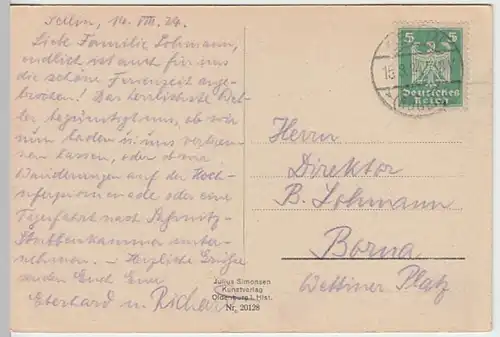 Sellin, 14. VIII. 24.
Liebe Familie Lohmann,
endlich ist auch für uns
die schöne Ferienzeit ange-
brochen! Das herrlichste Wet-
ter begünstigt uns, ob wir
nun baden u. uns verbren-
nen lassen, oder ob wir
Wanderungen auf der Hoch-
uferpromenade oder eine
Tagesfahrt nach Saßnitz-
Stubbenkammer unter-
nehmen. – Herzliche Grüße
senden Euch Eure
Eberhard u. Richard
5 5
Deutsches
Reich
Herrn
Direktor
B. Lohmann
Borna
Wettiner Platz
Julius Simonsen
Kunstverlag
Oldenburg i. Hlst.
Nr. 20128